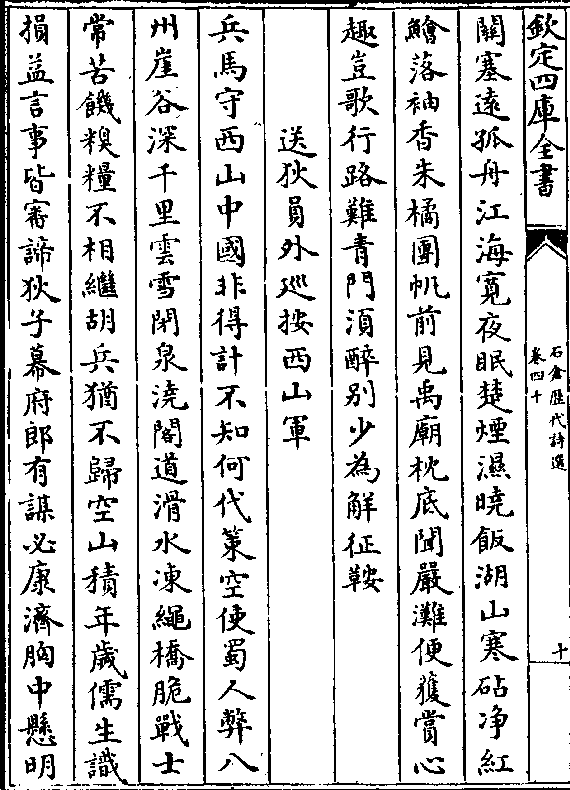 欽定四庫全書
石倉歷代詩選
卷四十
十
關塞遠孤舟江海寛夜眠楚煙濕曉飯湖山寒砧浄紅
鱠落袖香朱橘團帆前見禹廟枕底聞嚴灘便獲賞心
趣豈歌行路難青門湏醉别少為解征鞍
送狄員外巡按西山軍
兵馬守西山中國非得計不知何代策空使蜀人弊八
州崖谷深千里雲雪閉泉澆閣道滑水凍繩橋脆戰士
常苦饑糗糧不相繼胡兵猶不歸空山積年歲儒生識
損益言事皆審諦狄子幕府郎有謀必康濟胸中懸明